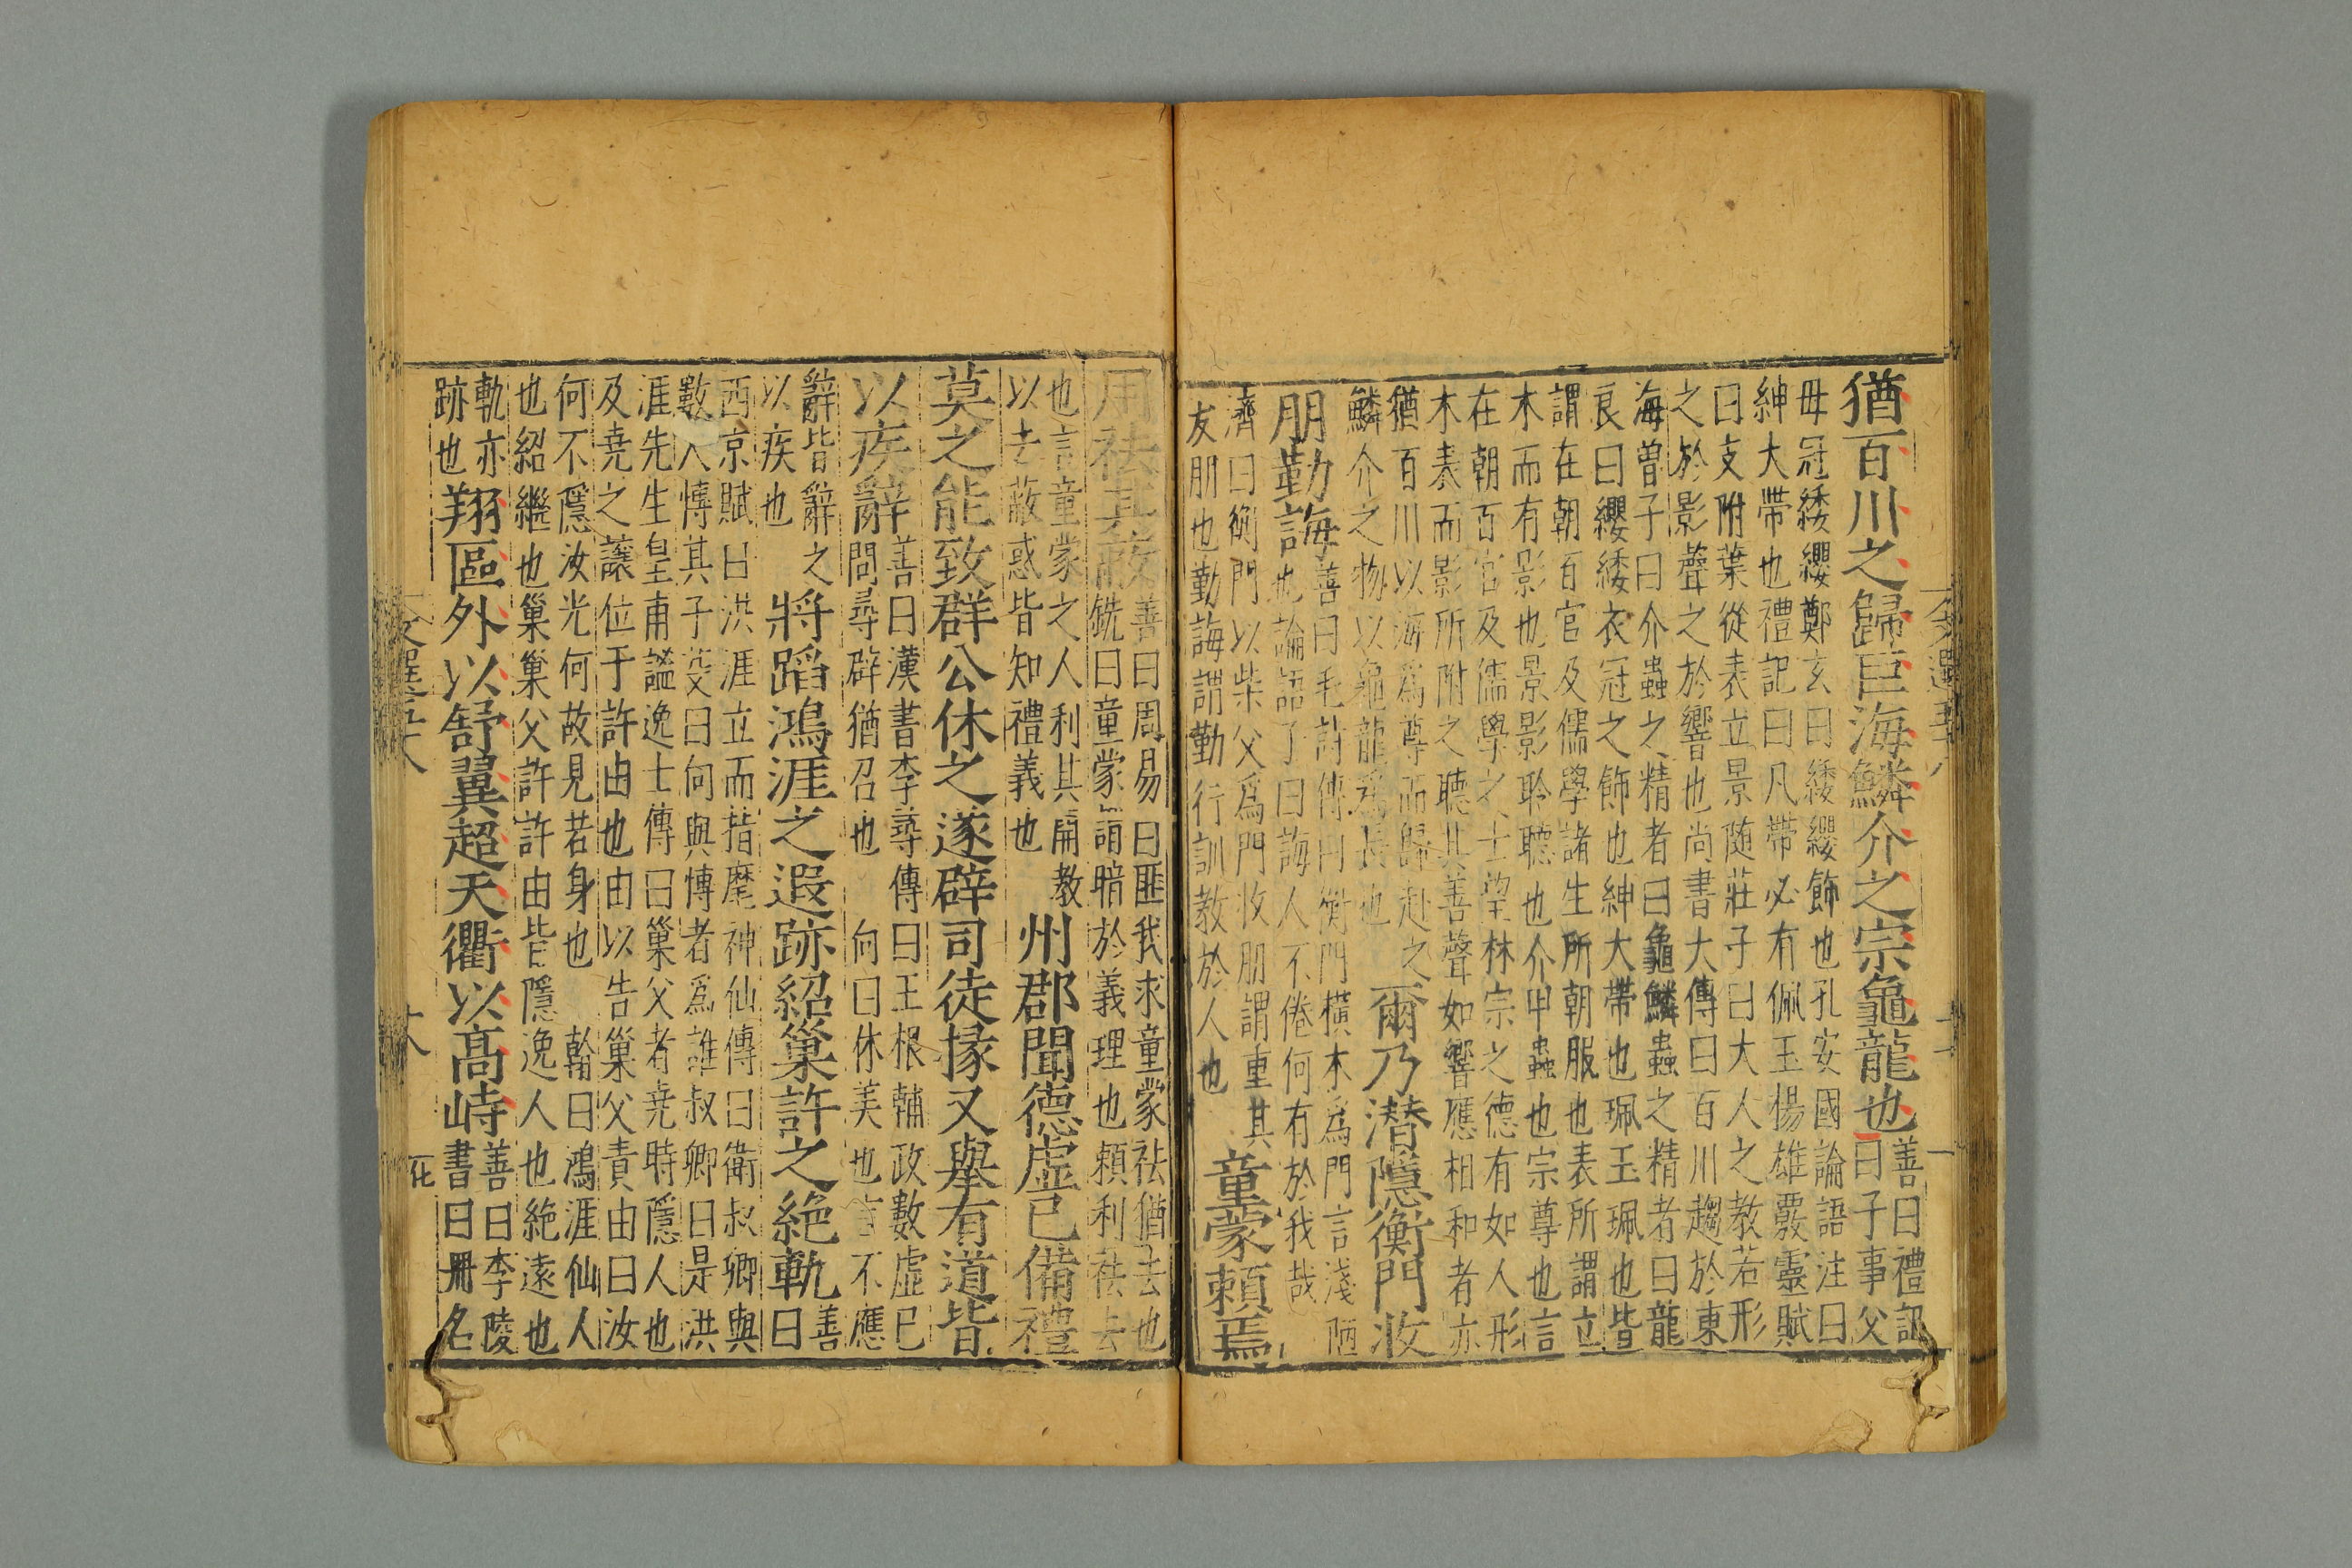 猶百川之歸巨海鱗介之宗龜龍也善曰禮記
曰子事父
毋冠緌纓鄭玄曰緌纓飾也孔安國論語注曰
紳大帶也禮記曰凡帶必有佩玉楊雄覈靈賦
曰支附葉從表立景随莊子曰大人之教若形
之於影聲之於響也尚書大傳曰百川趨於東
海曽子曰介蟲之精者曰龜鱗蟲之精者曰龍
良曰纓緌衣冠之飾也紳大帶也珮玉珮也皆
謂在朝百官及儒學諸生所朝服也表所謂立
木而有影也景影聆聽也介甲蟲也宗尊也言
在朝百官及儒學之士望林宗之德有如人形
木表而影所附之聽其善聲如響應相和者亦
猶百川以海爲尊而歸赴之
鱗介之物以龜龍爲長也
爾乃潜隱衡門收
朋勤誨善曰毛詩傳曰衡門橫木爲門言淺陋
也論語子曰誨人不倦何有於我哉
濟曰衡門以柴父爲門收朋謂重其
友朋也勤誨謂勤行訓教於人也
童蒙頼焉
用祛其蔽善曰周易曰匪我求童蒙祛猶去也
銑曰童蒙謂暗於義理也頼利祛去
也言童蒙之人利其開教
以去蔽惑皆知禮義也
州郡聞德虚已備禮
莫之能致群公休之遂辟司徒掾又舉有道皆
以疾辭善曰漢書李尋傳曰王根輔政數虚已
問尋辟猶召也　向曰休美也言不應
辭皆辭之
以疾也
將蹈鴻涯之遐跡紹巢許之絶軌善
曰
西京賦曰洪涯立而指麾神仙傳曰衛叔卿與
數人慱其子茭曰向與慱者爲誰叔卿曰是洪
涯先生皇甫謐逸士傳曰巢父者尭時隱人也
及尭之讓位于許由也由以告巢父責由曰汝
何不隱汝光何故見若身也　翰曰鴻涯仙人
也紹繼也巢巢父許許由皆隱逸人也絶遠也
軌亦
跡也
翔區外以舒翼超天衢以髙峙善曰李陵
書曰冊名